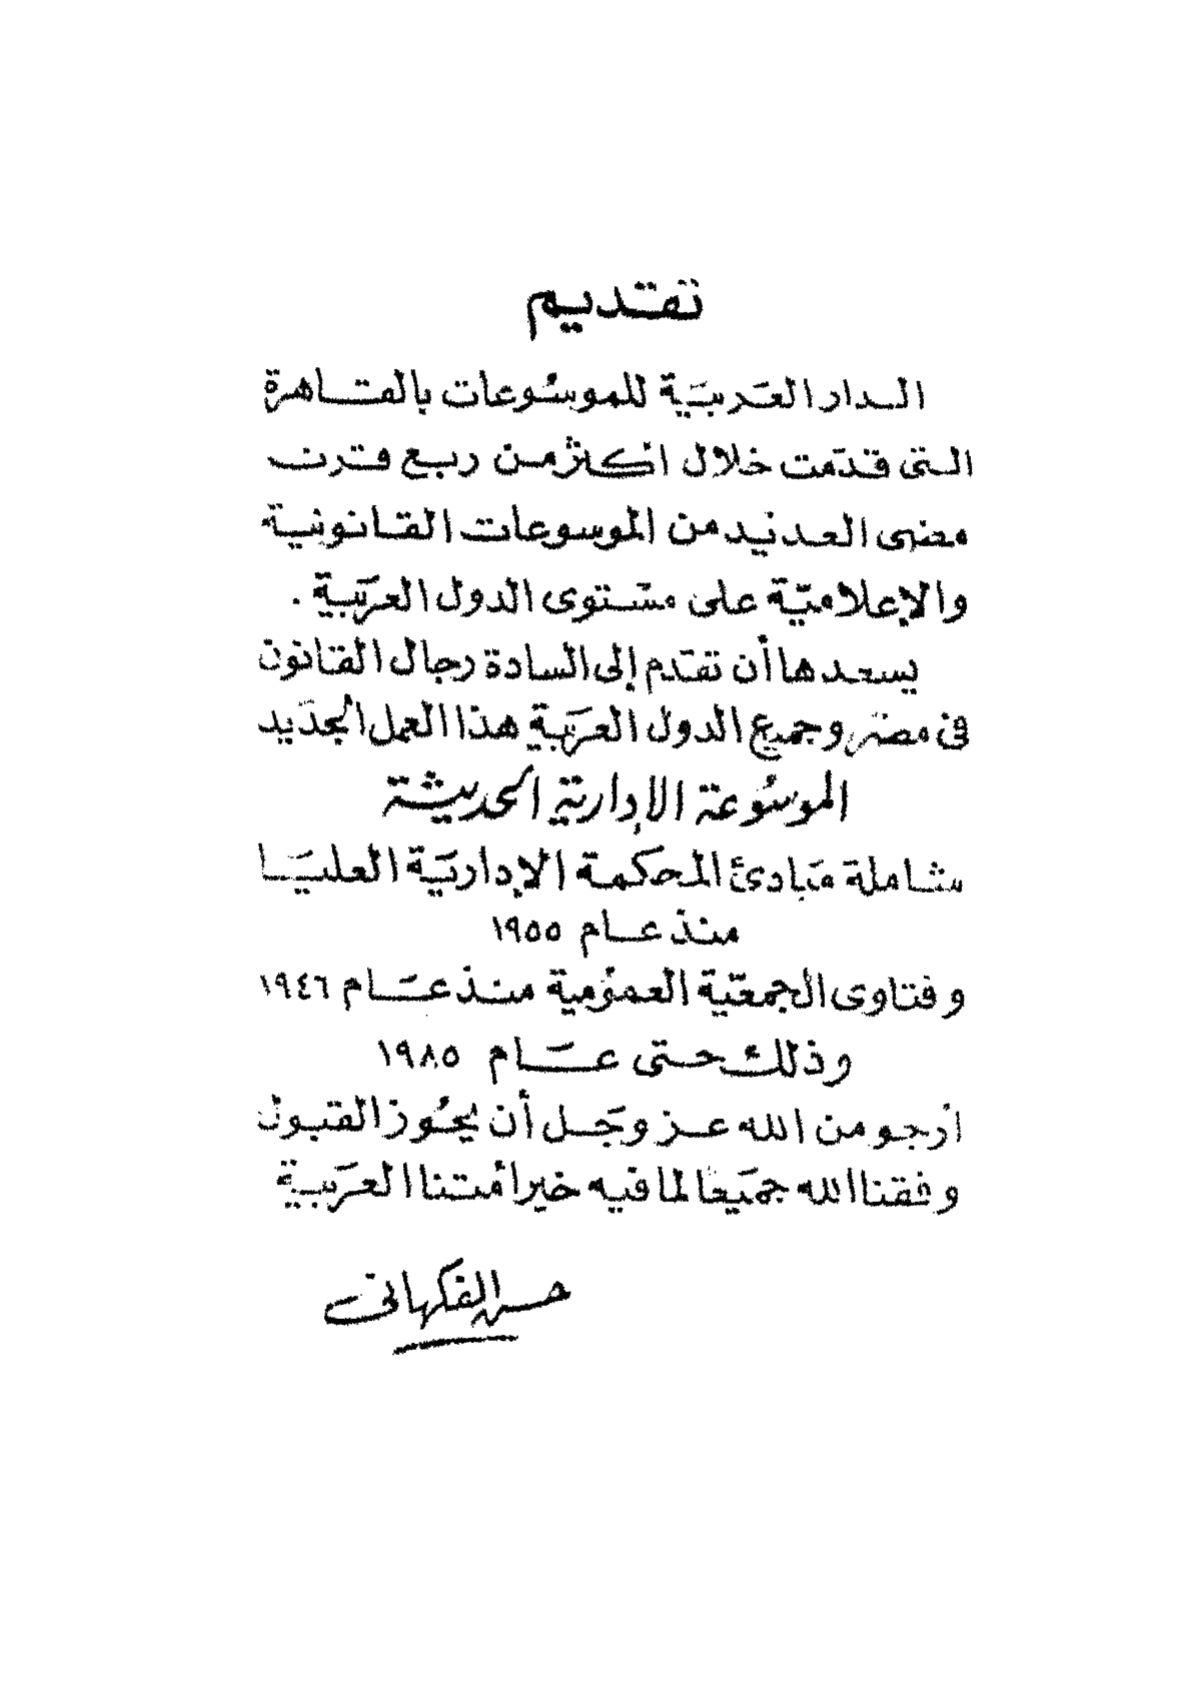 تقديم
الدار العربية للموسوعات بالقاهرة
التى قدمت خلال اكثر من ربع قرن
مضى العديد من الموسوعات القانونية
والإعلامية على مستوى الدول العربية .
يسعدها أن تقدم إلى السادة رجال القانون
فى مصر وجميع الدول العربية هذا العمل الجديد
الموسوعة الإدارية الحديثة
شاملة مبادئ المحكمة الإدارية العليا
منذ عام ١٩٥٥
وفتاوى الجمعية العمومية منذ عام ١٩٤٦
وذلك حتى عام ١٩٨٥
أرجو من الله عز وجل أن يحوز القبول
وفقنا الله جميعا لما فيه خير أمتنا العربية
حسن الفكهانى